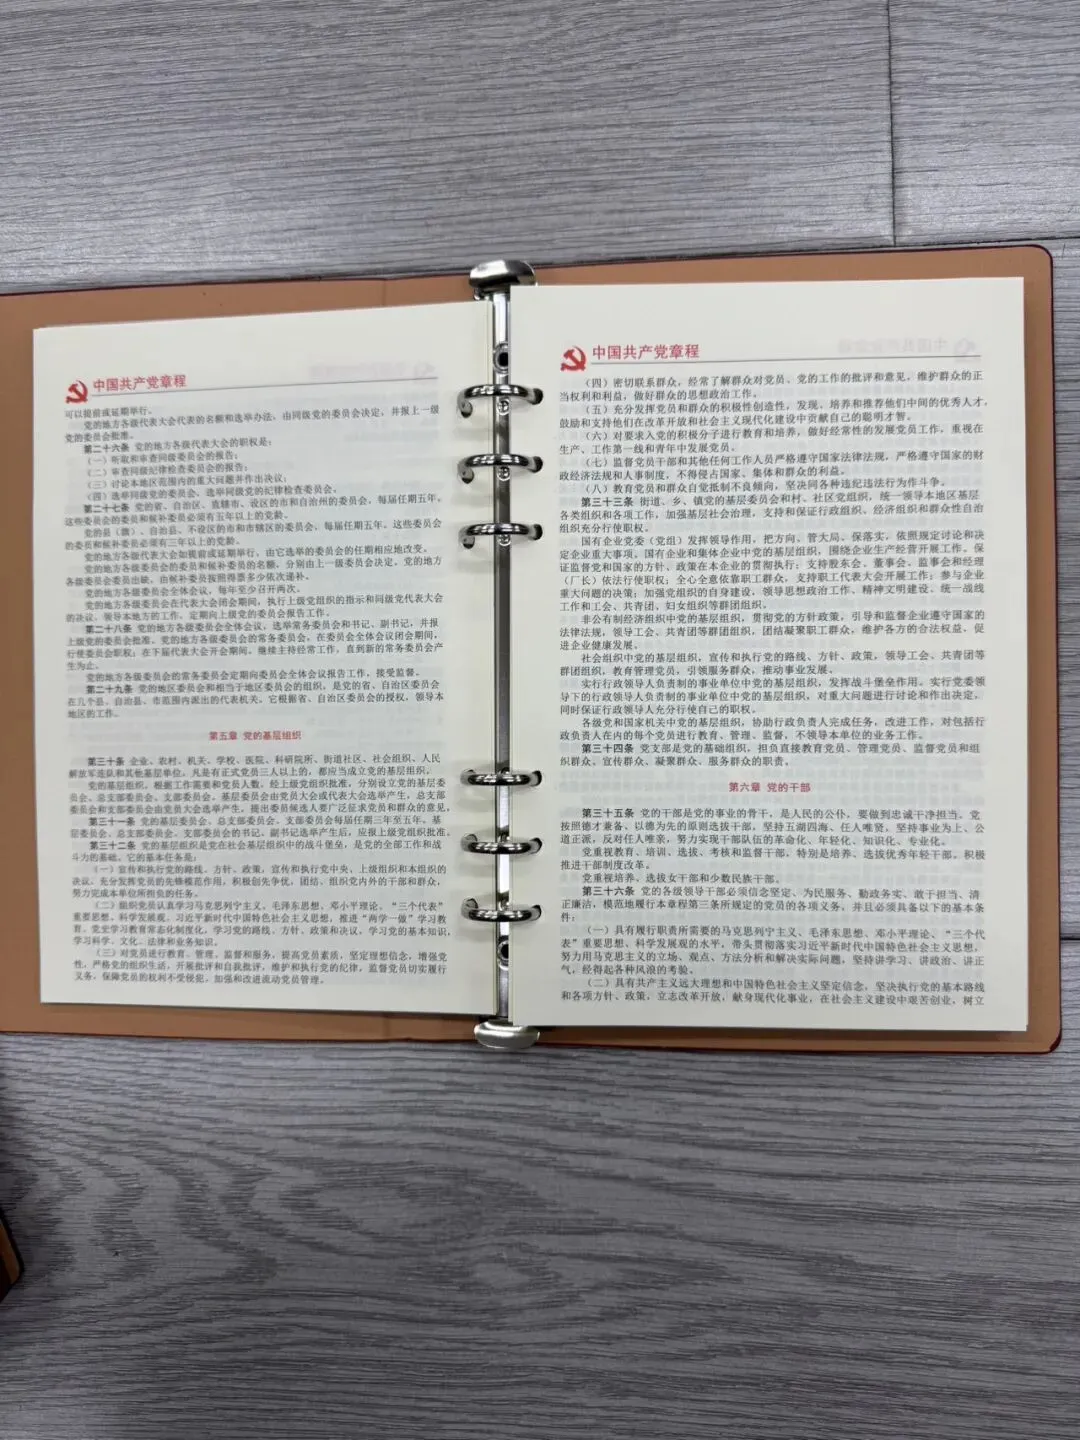 中国共产党章程
可以提前或延期举行。
党的地方各级代表大会代表的名额和选举办法，由同级党的委员会决定，并报上一级
党的委员会批准。
第二十六条 党的地方各级代表大会的职权是：
（一）听取和审查同级委员会的报告；
（二）审查同级纪律检查委员会的报告；
（三）讨论本地区范围内的重大问题并作出决议；
（四）选举同级党的委员会，选举同级党的纪律检查委员会。
第二十七条 党的省、自治区、直辖市、设区的市和自治州的委员会，每届任期五年。
这些委员会的委员和候补委员必须有五年以上的党龄。
党的县（旗）、自治县、不设区的市和市辖区的委员会，每届任期五年。这些委员会
的委员和候补委员必须有三年以上的党龄。
党的地方各级代表大会如提前或延期举行，由它选举的委员会的任期相应地改变。
党的地方各级委员会的委员和候补委员的名额，分别由上一级委员会决定。党的地方
各级委员会委员出缺，由候补委员按照得票多少依次递补。
党的地方各级委员会全体会议，每年至少召开两次。
党的地方各级委员会在代表大会闭会期间，执行上级党组织的指示和同级党代表大会
的决议，领导本地方的工作，定期向上级党的委员会报告工作。
第二十八条 党的地方各级委员会全体会议，选举常务委员会和书记、副书记，并报
上级党的委员会批准。党的地方各级委员会的常务委员会，在委员会全体会议闭会期间，
行使委员会职权；在下届代表大会开会期间，继续主持经常工作，直到新的常务委员会产
生为止。
党的地方各级委员会的常务委员会定期向委员会全体会议报告工作，接受监督。
第二十九条 党的地区委员会和相当于地区委员会的组织，是党的省、自治区委员会
在几个县、自治县、市范围内派出的代表机关。它根据省、自治区委员会的授权，领导本
地区的工作。
第五章 党的基层组织
第三十条 企业、农村、机关、学校、医院、科研院所、街道社区、社会组织、人民
解放军连队和其他基层单位，凡是有正式党员三人以上的，都应当成立党的基层组织。
党的基层组织，根据工作需要和党员人数，经上级党组织批准，分别设立党的基层委
员会、总支部委员会、支部委员会。基层委员会由党员大会或代表大会选举产生，总支部
委员会和支部委员会由党员大会选举产生，提出委员候选人要广泛征求党员和群众的意见。
第三十一条 党的基层委员会、总支部委员会、支部委员会每届任期三年至五年。基
层委员会、总支部委员会、支部委员会的书记、副书记选举产生后，应报上级党组织批准。
第三十二条 党的基层组织是党在社会基层组织中的战斗堡垒，是党的全部工作和战
斗力的基础。它的基本任务是：
（一）宣传和执行党的路线、方针、政策，宣传和执行党中央、上级组织和本组织的
决议，充分发挥党员的先锋模范作用，积极创先争优，团结、组织党内外的干部和群众，
努力完成本单位所担负的任务。
（二）组织党员认真学习马克思列宁主义、毛泽东思想、邓小平理论、“三个代表”
重要思想、科学发展观、习近平新时代中国特色社会主义思想，推进“两学一做”学习教
育、党史学习教育常态化制度化，学习党的路线、方针、政策和决议，学习党的基本知识，
学习科学、文化、法律和业务知识。
（三）对党员进行教育、管理、监督和服务，提高党员素质，坚定理想信念，增强党
性，严格党的组织生活，开展批评和自我批评，维护和执行党的纪律，监督党员切实履行
义务，保障党员的权利不受侵犯。加强和改进流动党员管理。
中国共产党章程
（四）密切联系群众，经常了解群众对党员、党的工作的批评和意见，维护群众的正
当权利和利益，做好群众的思想政治工作。
（五）充分发挥党员和群众的积极性创造性，发现、培养和推荐他们中间的优秀人才，
鼓励和支持他们在改革开放和社会主义现代化建设中贡献自己的聪明才智。
（六）对要求入党的积极分子进行教育和培养，做好经常性的发展党员工作，重视在
生产、工作第一线和青年中发展党员。
（七）监督党员干部和其他任何工作人员严格遵守国家法律法规，严格遵守国家的财
政经济法规和人事制度，不得侵占国家、集体和群众的利益。
（八）教育党员和群众自觉抵制不良倾向，坚决同各种违纪违法行为作斗争。
第三十三条 街道、乡、镇党的基层委员会和村、社区党组织，统一领导本地区基层
各类组织和各项工作，加强基层社会治理，支持和保证行政组织、经济组织和群众性自治
组织充分行使职权。
国有企业党委（党组）发挥领导作用，把方向、管大局、保落实，依照规定讨论和决
定企业重大事项。国有企业和集体企业中党的基层组织，围绕企业生产经营开展工作。保
证监督党和国家的方针、政策在本企业的贯彻执行；支持股东会、董事会、监事会和经理
（厂长）依法行使职权；全心全意依靠职工群众，支持职工代表大会开展工作；参与企业
重大问题的决策；加强党组织的自身建设，领导思想政治工作、精神文明建设、统一战线
工作和工会、共青团、妇女组织等群团组织。
非公有制经济组织中党的基层组织，贯彻党的方针政策，引导和监督企业遵守国家的
法律法规，领导工会、共青团等群团组织，团结凝聚职工群众，维护各方的合法权益，促
进企业健康发展。
社会组织中党的基层组织，宣传和执行党的路线、方针、政策，领导工会、共青团等
群团组织，教育管理党员，引领服务群众，推动事业发展。
实行行政领导人负责制的事业单位中党的基层组织，发挥战斗堡垒作用。实行党委领
导下的行政领导人负责制的事业单位中党的基层组织，对重大问题进行讨论和作出决定，
同时保证行政领导人充分行使自己的职权。
各级党和国家机关中党的基层组织，协助行政负责人完成任务，改进工作，对包括行
政负责人在内的每个党员进行教育、管理、监督，不领导本单位的业务工作。
第三十四条 党支部是党的基础组织，担负直接教育党员、管理党员、监督党员和组
织群众、宣传群众、凝聚群众、服务群众的职责。
第六章 党的干部
第三十五条 党的干部是党的事业的骨干，是人民的公仆，要做到忠诚干净担当。党
按照德才兼备、以德为先的原则选拔干部，坚持五湖四海、任人唯贤，坚持事业为上、公
道正派，反对任人唯亲，努力实现干部队伍的革命化、年轻化、知识化、专业化。
党重视教育、培训、选拔、考核和监督干部，特别是培养、选拔优秀年轻干部。积极
推进干部制度改革。
党重视培养、选拔女干部和少数民族干部。
第三十六条 党的各级领导干部必须信念坚定、为民服务、勤政务实、敢于担当、清
正廉洁，模范地履行本章程第三条所规定的党员的各项义务，并且必须具备以下的基本条
件：
（一）具有履行职责所需要的马克思列宁主义、毛泽东思想、邓小平理论、“三个代
表”重要思想、科学发展观的水平，带头贯彻落实习近平新时代中国特色社会主义思想，
努力用马克思主义的立场、观点、方法分析和解决实际问题，坚持讲学习、讲政治、讲正
气，经得起各种风浪的考验。
（二）具有共产主义远大理想和中国特色社会主义坚定信念，坚决执行党的基本路线
和各项方针、政策，立志改革开放，献身现代化事业，在社会主义建设中艰苦创业，树立